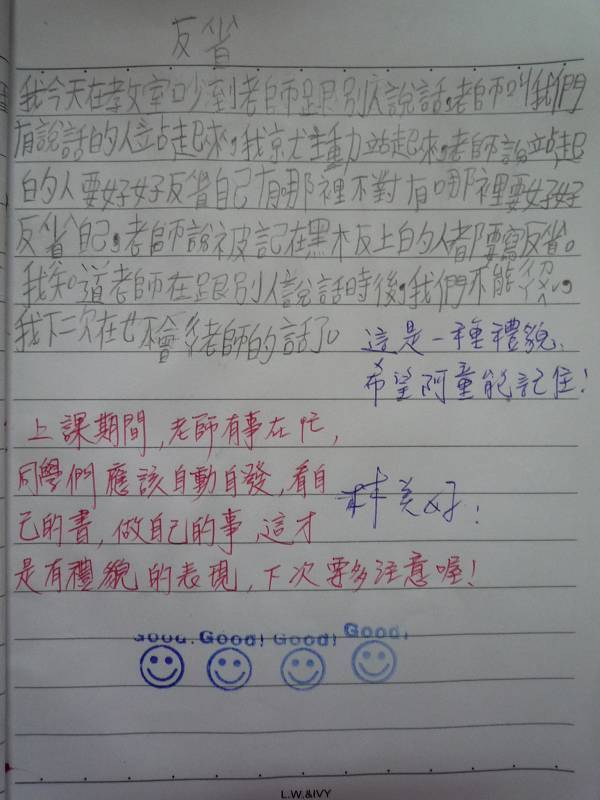 反省
我今天在教室吵到老師跟別人說話。老師叫我們
有說話的人站起來。我就主動站起來。老師說站起
的人要好好反省自己有哪裡不對有哪裡要好好
反省自己。老師說被記在黑木反上的人都要寫反省。
我知道老師在跟別人說話時後。我們不能
我下二次在也不會老師的話了。
這是一種禮貌,
希望阿童能記住!
上課期間,老師有事在忙,
同學們應該自動自發,看自
己的書,做自己的事,這才
是有禮貌的表現,下次要多注意喔!
林美好!
Good. Good! Good! Good!
L.W.&IVY